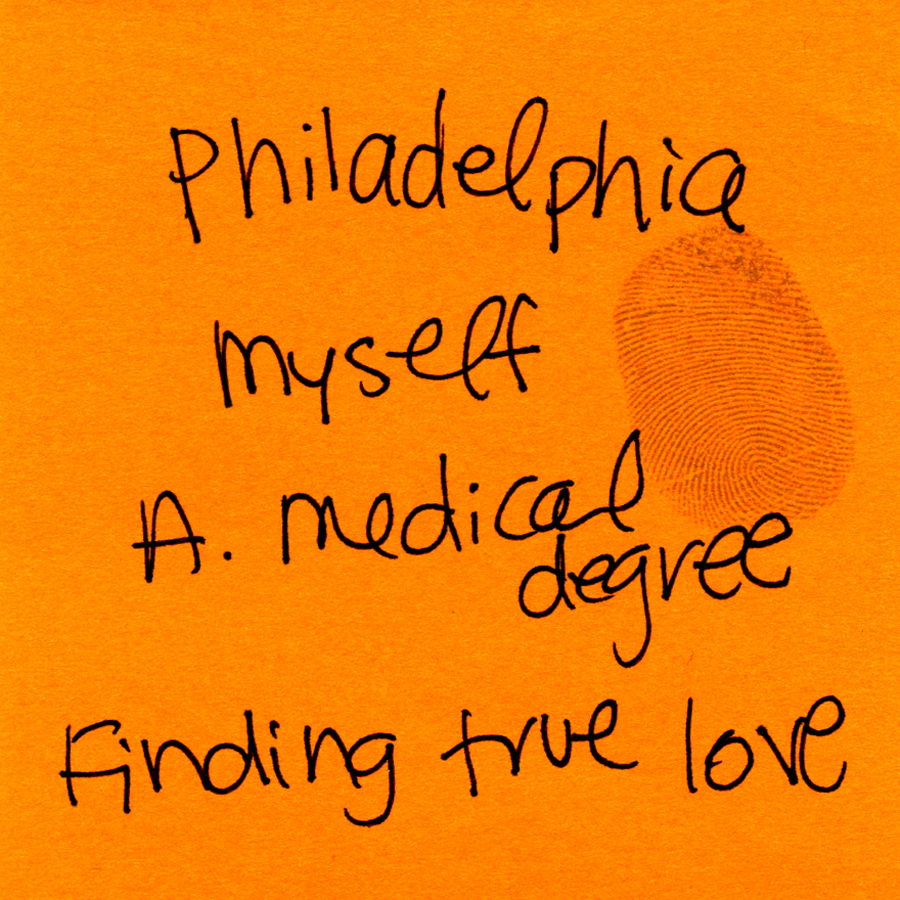 Philadelphia
myself
A. medical
degree
Finding true love